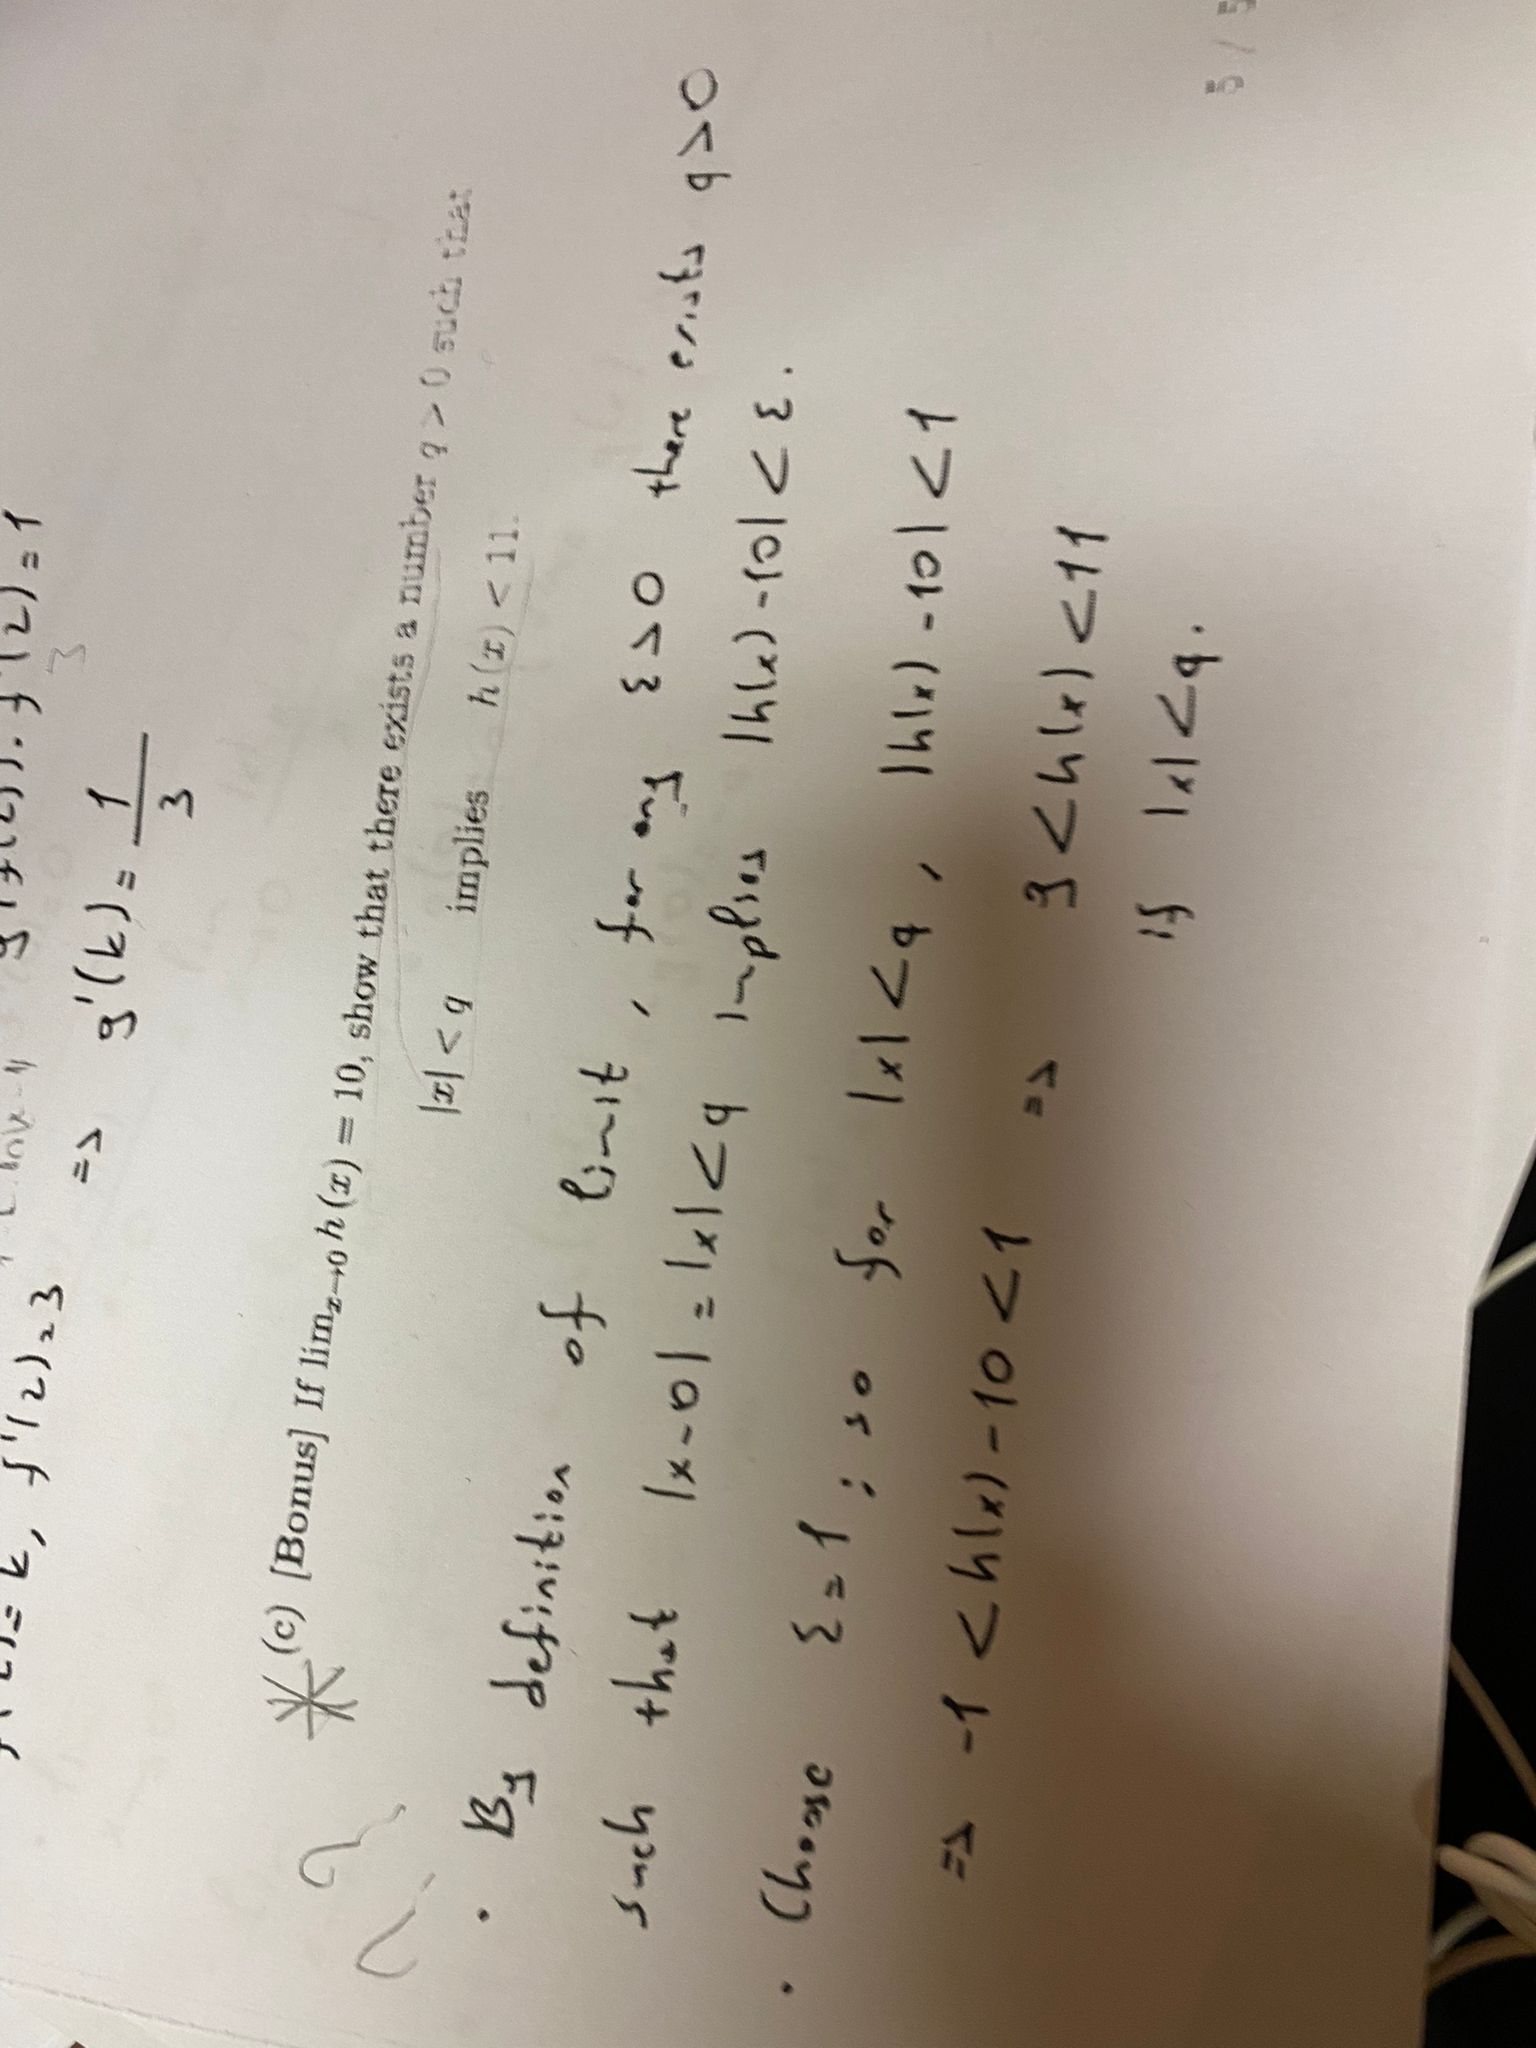 = k, f'(2) = 3
g'(f(2)). f'(2) = 1
3
=> g'(k) = 1/3
?? * (c) [Bonus] If lim_{x→0} h(x) = 10, show that there exists a number q > 0 such that
|x| < q implies h(x) < 11.
• By definition of limit, for any ε>0 there exists q>0
such that |x-0| = |x| < q implies |h(x)-10| < ε.
• Choose ε=1; so for |x|<q, |h(x)-10|<1
=> -1 < h(x)-10 < 1 => 9 < h(x) < 11
if |x|<q.
5 / 5